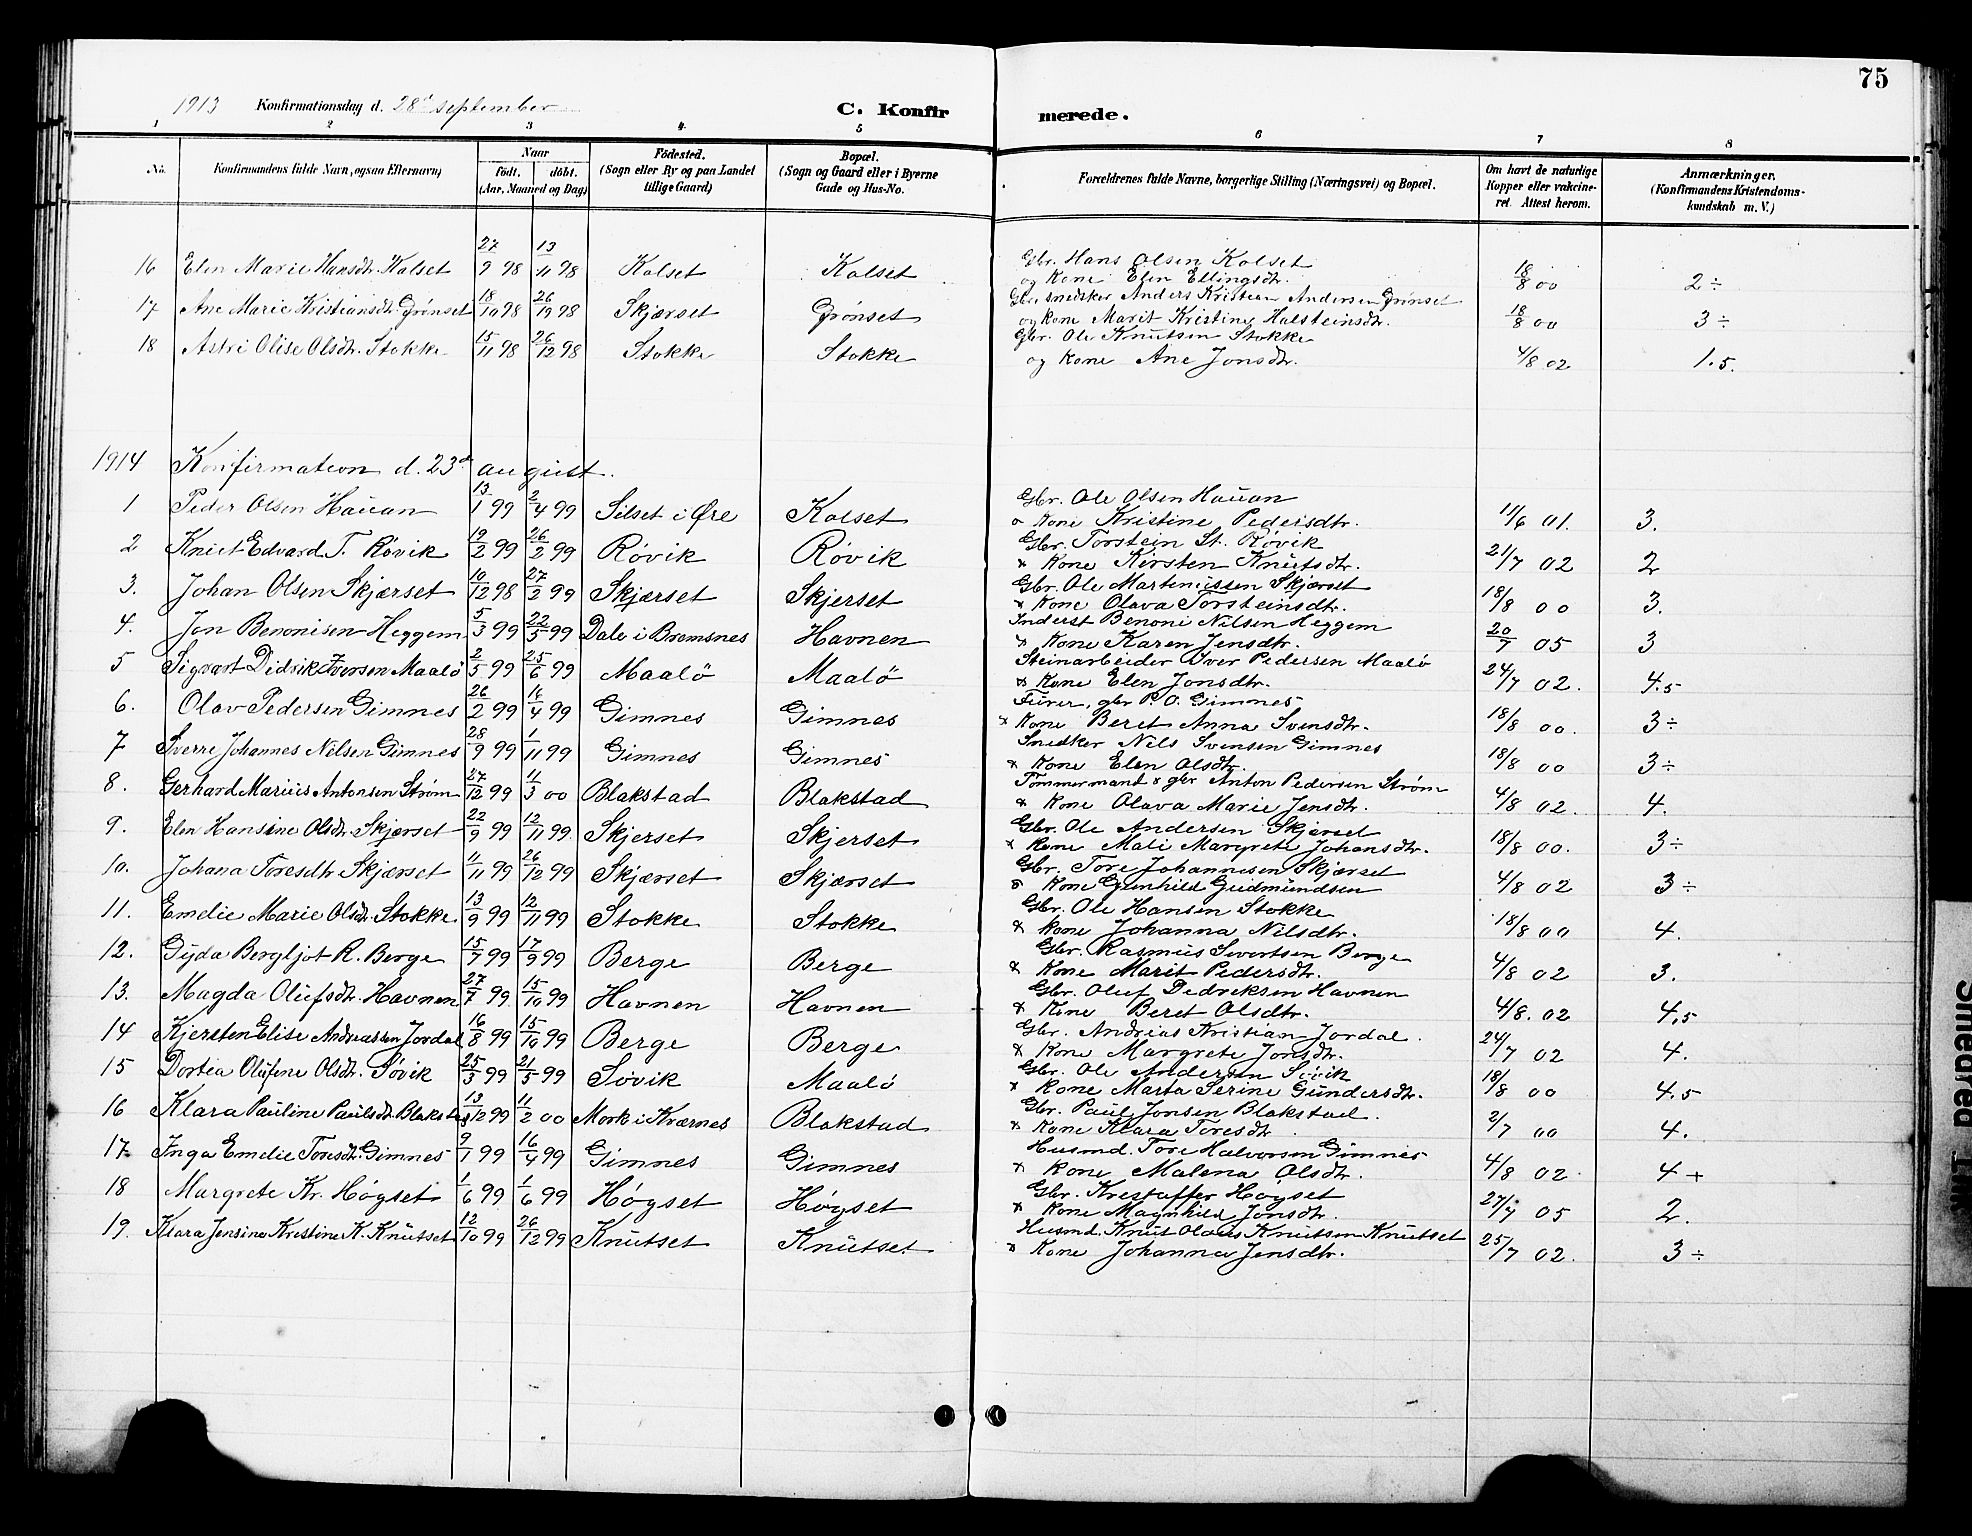 75
1913 Konfirmationsdag d. 28d september
C. Konfirmerede.
1 2 3 4 5 6 7 8
No. Konfirmandens fulde Navn, ogsaa Efternavn) Naar født. døbt. (Aar, Maaned og Dag) Fødested. (Sogn eller By og paa Landet tillige Gaard) Bopæl. (Sogn og Gaard eller i Byerne Gade og Hus-No. Forældrenes fulde Navne, borgerlige Stilling (Næringsvei) og Bopæl. Om havt de naturlige Kopper eller vakcineret. Attest herom. Anmærkninger. (Konfirmandens Kristendomskundskab m. V.)
16 Elen Marie Hansdtr. Kalset 27/9 98 13/11 98 Kalset Kalset Gbr. Hans Olsen Kolset og Kone Elen Ellingsdtr. 18/8 00 2 ÷
17 Ane Marie Kristiansdtr. Grønset 18/10 98 26/12 98 Skjærset Grønset Gbr., snedker Anders Kristian Andersen Grønset og Kone Marit Kristine Halsteinsdtr. 18/8 00 3 ÷
18 Astri Olise Olsdtr. Stokke 15/11 98 26/12 98 Stokke Stokke Gbr. Ole Knutsen Stokke og Kone Ane Jonsdtr. 4/8 02 1.5.
1914 Konfirmation d. 23d august.
1 Peder Olsen Hauan 13/1 99 2/4 99 Silset i Øre Kalset Gbr. Ole Olsen Hauan o Kone Kristine Pedersdtr. 11/6 01. 3.
2 Knut Edvard T. Røvik 19/2 99 26/2 99 Røvik Røvik Gbr. Torstein St. Røvik & Kone Kirsten Knutsdtr. 21/7 02 2
3. Johan Olsen Skjærset 10/12 98 27/2 99 Skjærset Skjerset Gbr. Ole Martinussen Skjærset & Kone Olava Torsteinsdtr. 18/8 00 3.
4. Jon Benonisen Heggem 5/3 99 22/5 99 Dale i Bremsnes Havnen Inderst Benoni Nilsen Heggem & Kone Karen Jensdtr. 20/7 05 3
5 Sigvart Didrik Iversen Maalø 2/5 99 25/6 99 Maalø Maalø Steinarbeider Iver Pedersen Maalø & Kone Elen Jonsdtr. 24/7 02. 4.5
6. Olav Pedersen Gimnes 26/2 99 16/4 99 Gimnes Gimnes Furer, gbr P. O. Gimnes & Kone Beret Anna Svensdtr. 18/8 00. 3 ÷
7 Sverre Johannes Nilsen Gimnes 28/9 99 1/11 99 Gimnes Gimnes Snedker Nils Svensen Gimnes & Kone Elen Olsdtr. 18/8 00 3 ÷
8. Gerhard Marius Antonsen Strøm 27/12 99 11/3 00 Blakstad Blakstad Tømmermand & gbr Anton Pedersen Strøm & Kone Olava Marie Jensdtr. 4/8 02. 4.
9. Elen Hansine Olsdtr. Skjærset 22/9 99 12/11 99. Skjerset Skjerset Gbr. Ole Andersen Skjærset & Kone Mali Margrete Johansdtr. 18/8 00. 3 ÷
10. Johana Toresdtr Skjærset 11/11 99 26/12 99 Skjærset Skjærset Gbr. Tore Johannesen Skjærset & Kone Gunhild Gudmundsen 4/8 02 3 ÷
11. Emelie Marie Olsdtr. Stokke. 13/9 99 12/11 99 Stokke Stokke Gbr. Ole Hansen Stokke & Kone Johanna Nilsdtr. 18/8 00 4.
12. Gyda Bergljot R. Berge 15/7 99 17/9 99 Berge Berge Gbr. Rasmus Sivertsen Berge & Kone Marit Pedersdtr. 4/8 02 3.
13. Magda Olufsdtr. Havnen 27/7 99 15/10 99 Havnen Havnen Gbr. Oluf Dedreksen Havnen & Kone Beret Olsdtr. 4/8. 02 4,5
14 Kjersten Elise Andreassen Jordal 16/8 99 15/10 99 Berge Berge Gbr. Andreas Kristian Jordal. & Kone Margrete Jonsdtr. 24/7 02 4.
15 Dortea Olufine Olsdtr. Søvik 25/3 99 21/5 99 Søvik Maalø Gbr. Ole Andersen Søvik & Kone Marta Serine Gundersdtr. 18/8 00 4,5
16 Klara Pauline Paulsdtr. Blakstad 13/12 99 11/2 00 Mork i Kværnes Blakstad Gbr. Paul Jonsen Blakstad. & Kone Klara Toresdtr 2/7 00 4.
17 Inga Emelie Toresdtr. Gimnes 9/1 99 16/4 99 Gimnes Gimnes Husmd. Tore Halvorsen Gimnes & Kone Malena Olsdtr. 4/8 02. 4 +
18 Margrete Kr. Høgset 1/6 99 1/6 99 Høgset Høgset Gbr. Krestoffer Høgset & Kone Magnhild Jonsdtr. 27/7 05 2.
19. Klara Jensine Kristine K. Knutset 12/10 99 26/12 99 Knutset Knutset Husmd. Knut Olaus Knutsen Knutset & Kone Johanna Jensdtr. 25/7 02. 3 ÷
Smedred